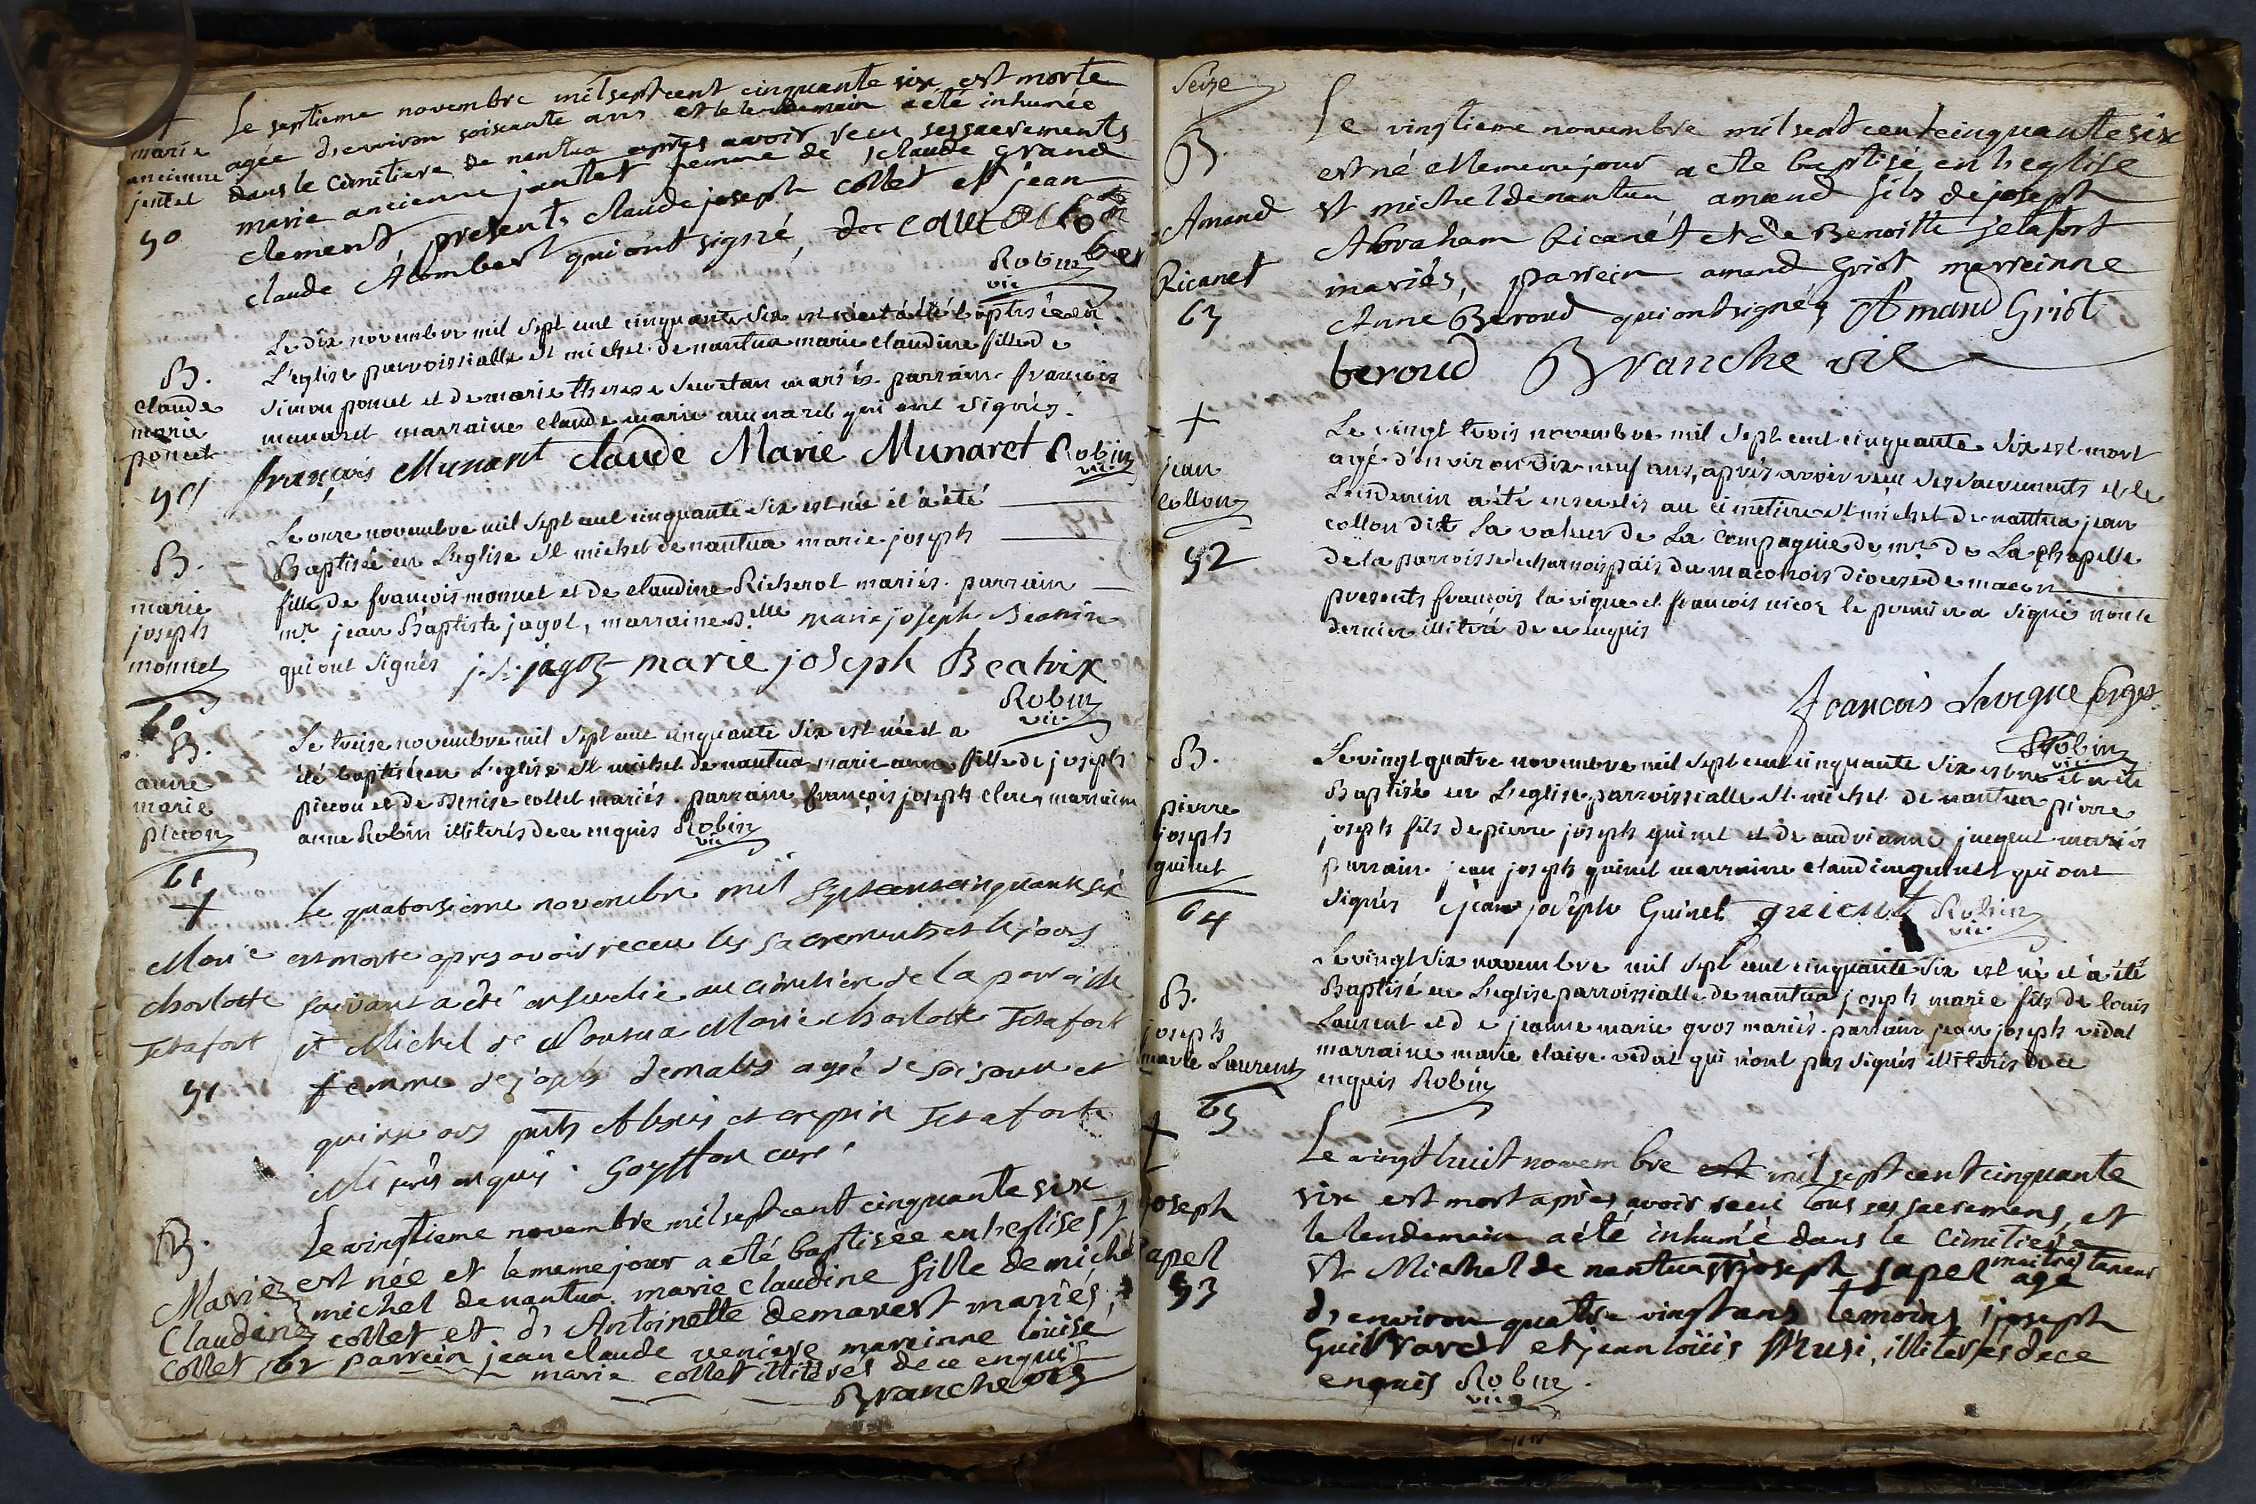 +
marie
ancienne
jantet
50
Le septieme novembre mil sept cent cinquante six est morte
agée d'environ soisante ans et le lendemain a eté inhumée
dans le cimitiere de nantua après avoir reçu ses sacrements
marie ancienne jantet femme de claude grand
clement, presents claude joseph collet et jean
claude Alombert qui ont signé,
Robin
vic
B.
claude
marie
poncet
59
Le dix novembre mil sept cent cinquante six est née et a été baptisée en
L'eglise parroissialle st michel de nantua marie claudine fille de
simon poncet et de marie therese mariés. parrain françois
munaret marraine claude marie munaret qui ont signés.
françois Munaret Claude Marie Munaret Robin
vic
B.
marie
joseph
monnet
60
Le onze novembre mil sept cent cinquante six est née et a été
Baptisée en L'eglise st michel de nantua marie joseph
fille de françois monnet et de claudine Richerol mariés. parrain
mr jean Baptiste jagot, marraine Delle marie joseph Beatrix
qui ont signés j. b. jagot marie joseph Beatrix
Robin
vic
B.
anne
marie
piccon
61
Le treise novembre mil sept cent cinquante six est née et a
été baptisée en L'eglise st michel de nantua marie anne fille de joseph
piccon et de Denise collet mariés. parrain françois joseph marraine
anne Robin illiterés de ce enquis Robin
vic
+
Marie
charlotte
Tetafort
51
Le quatorsieme novembre mil sept cent cinquante six
est morte apres avoir receu les sacrements et le jour
suivant a été ensevelie au cimitière de la parroisse
st Michel de Nantua Marie charlotte Tetafort
femme de joseph demables agée de soisante et
quinse ans pnts Alexis et crepin Tetafort
illiterés enquis. Goyffon curé
B.
Marie
Claudine
Collet 62
Le vingtieme novembre mil sept cent cinquante six
est née et le meme jour a eté baptisée en l'eglise st
michel de nantua marie claudine fille de michel
collet et d'Antoinette demarest mariés,
parrein jean claude marreinne louise
marie collet illiterés de ce enquis
Branche vic
Seize
B.
Amand
Ricanet
63
Le vingtieme novembre mil sept cent cinquante six
est né et le meme jour a eté baptisé en l'eglise
st michel de nantua amand fils de joseph
Abraham Ricanet et de Benoitte jetafort
mariés, parrein amand Griot, marreinne
Anne Béroud qui ont signés, Amand Griot
beroud Branche vic
+
jean
collon
52
Le vingt trois novembre mil sept cent cinquante six est mort
agé d'environ dix neuf ans, aprés avoir reçu ses sacrements et le
Lendemain a été enseveli au cimetiere st michel de nantua jean
collon dit La valeur de La compagnie de mr de La chapelle
de la parroisse echarnois pais du maconois diocese de macon
presents françois la vigne et françois nicor le premier a signé non le
dernier illiteré de ce enquis
françois Lavigne
Robin
vic
B.
pierre
joseph
guinet
64
Le vingt quatre novembre mil sept cent cinquante six est né et a été
Baptisé en L'eglise parroissialle st michel de nantua pierre
joseph fils de pierre joseph guinet et de andrianne juequet mariés
parrain jean joseph guinet marraine claudine guinet qui ont
signés jean joseph Guinet guient Robin
vic
B.
joseph
marie Laurent
65
Le vingt six novembre mil sept cent cinquante six est né et a été
Baptisé en L'eglise parroissialle de nantua joseph marie fils de louis
Laurent et de jeanne marie gros mariés. parrain jean joseph vidal
marraine marie claire vidal qui n'ont pas signés illiterés de ce
enquis Robin
+
joseph
sapel
53
Le vingt huit novembre est mil sept cent cinquante
six est mort après avoir recu tous ses sacremens, et
le lendemain a été inhumé dans le cimitiere
st Michel de nantua joseph sapel maitre taneur agé
d'environ quatre vingt ans temoins joseph
Guillard et jean loüis Musi, illiterés de ce
enquis Robin
vic